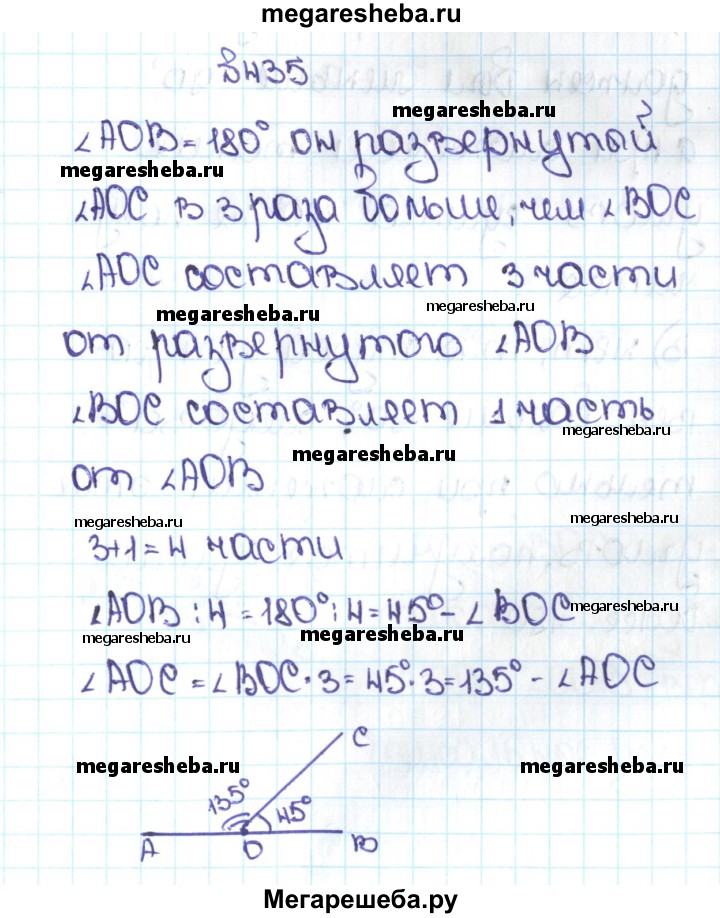 megaresheba.ru
В 435
megaresheba.ru
∠AOB = 180° он развернутой
megaresheba.ru
∠AOC в 3 раза больше, чем ∠BOC
∠AOC составляет 3 части
megaresheba.ru
megaresheba.ru
от развернутого ∠AOB
∠BOC составляет 1 часть
megaresheba.ru
megaresheba.ru
от ∠AOB
megaresheba.ru
megaresheba.ru
3+1=4 части
∠AOB : 4 = 180° : 4 = 45° - ∠BOC
megaresheba.ru
megaresheba.ru
megaresheba.ru
∠AOC = ∠BOC · 3 = 45° · 3 = 135° - ∠AOC
C
megaresheba.ru
megaresheba.ru
135° 45°
A O B
Мегарешеба.ру